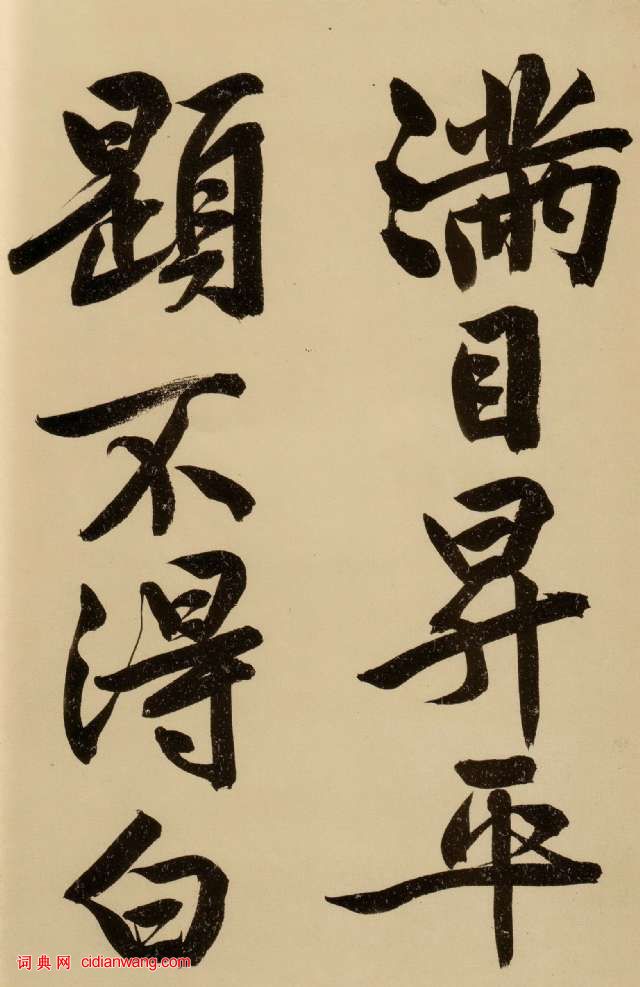 满目昇平
題不得白
词典网 cidianwang.com